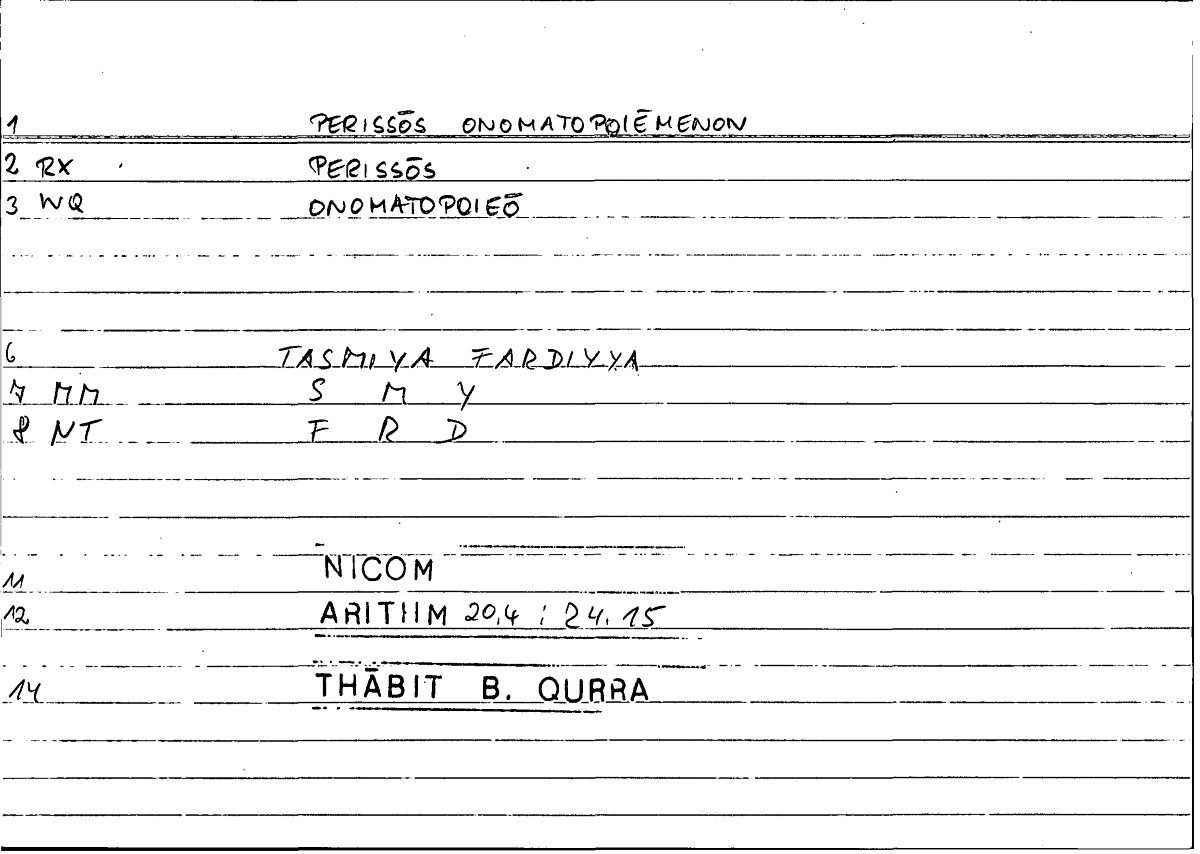 1 PERISSŌS ONOMATOPOIĒMENON
2 RX PERISSŌS
3 WQ ONOMATOPOIEŌ
6 TASMIYA FARDIYYA
7 MM S M Y
8 NT F R D
11 NICOM
12 ARITHM 20,4 ; 24.15
14 THĀBIT B. QURRA